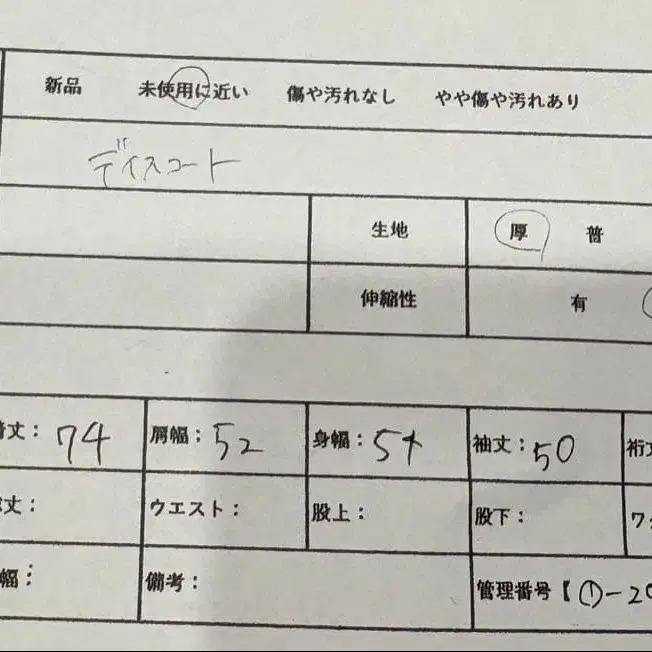 新品 未使用に近い 傷や汚れなし やや傷や汚れあり
ディスコート
生地 厚 普
伸縮性 有
丈: 74 肩幅: 52 身幅: 54 袖丈: 50 裄丈
丈: ウエスト: 股上: 股下: ワ
幅: 備考: 管理番号【 ①-20